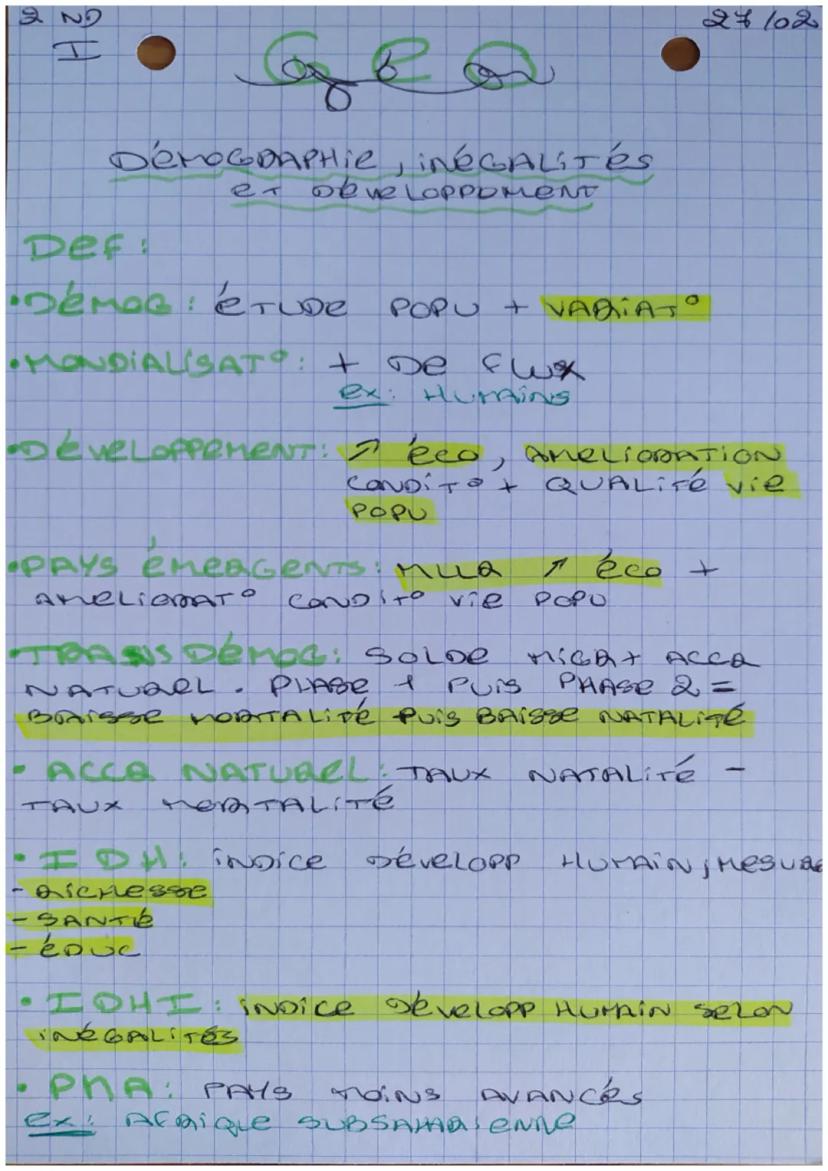 2 ND
I
27/02
Géo
DÉMOGRAPHIE, INÉGALITÉS
ET DÉVELOPPOMENT
DEF:
• DÉMOG: ÉTUDE POPU + VARIAT°
• MONDIALISAT°: + DE FLUX
ex: HUMAINS
• DÉVELOPPEMENT: ↗ ÉCO, AMELIORATION
CONDIT° + QUALITÉ VIE
POPU
• PAYS ÉMERGENTS: MLLR ↗ ÉCO +
AMELIORAT° CONDIT° VIE POPU
• TRANS DÉMOG: SOLDE MIGR + ACCR
NATUREL. PHASE 1 PUIS PHASE 2 =
BAISSE MORTALITÉ PUIS BAISSE NATALITÉ
• ACCR NATUREL: TAUX NATALITÉ -
TAUX MORTALITÉ
• IDH: INDICE DÉVELOPP HUMAIN, MESURE
- RICHESSE
- SANTÉ
- ÉDUC
• IDHI: INDICE DÉVELOPP HUMAIN SELON
INÉGALITÉS
• PMA: PAYS MOINS AVANCÉS
ex: AFRIQUE SUBSAHARIENNE